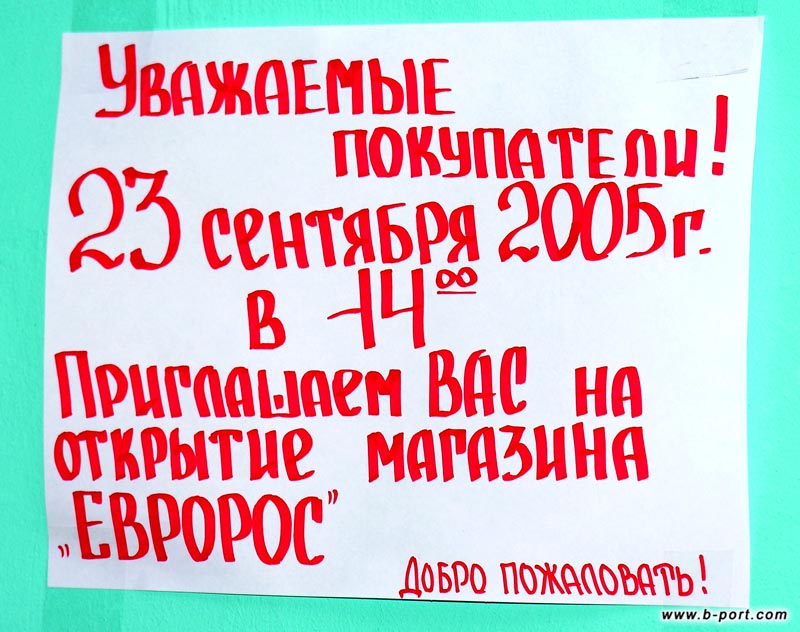 Уважаемые
покупатели!
23 сентября 2005г.
в 14⁰⁰
Приглашаем ВАС на
открытие магазина
„ЕВРОРОС”
Добро пожаловать!
www.b-port.com